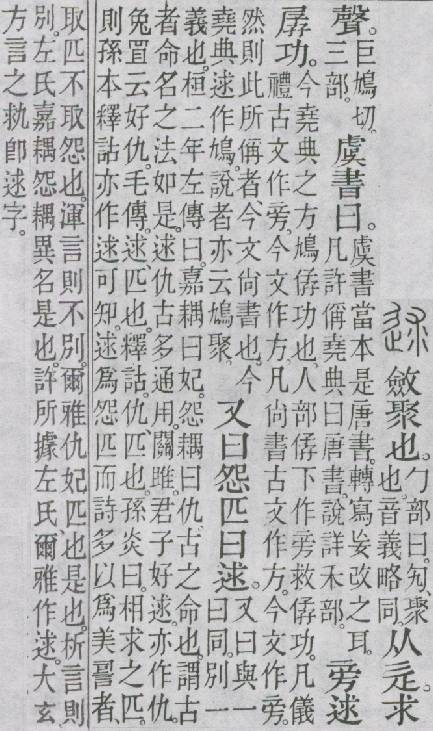 逑 斂聚也。勹部曰。勼、聚
也。音義略同。从辵。求
聲。巨鳩切。
三部。虞書曰。虞書當本是唐書。轉寫妄改之耳。
凡許偁堯典曰唐書。說詳禾部。旁逑
孱功。今堯典之方鳩僝功也。人部僝下作旁救孱功。凡儀
禮古文作旁。今文作方。凡尚書古文作方。今文作旁。
然則此所偁者、今文尚書也。今
堯典逑作鳩。說者亦云鳩聚。又曰怨匹曰逑。又曰與一
曰同。別一
義也。桓二年左傳曰。嘉耦曰妃。怨耦曰仇。古之命也。謂古
者命名之法如是。逑仇古多通用。關雎君子好逑亦作仇。
兔罝云好仇。毛傳逑、匹也。釋詁。仇、匹也。孫炎曰。相求之匹。
則孫本釋詁亦作逑可知。逑爲怨匹而詩多以爲美者、
取匹不取怨也。渾言則不別。爾雅仇妃匹也是也。析言則
別。左氏嘉耦怨耦異名是也。許所據左氏、爾雅作逑。大玄
方言之卽逑字。